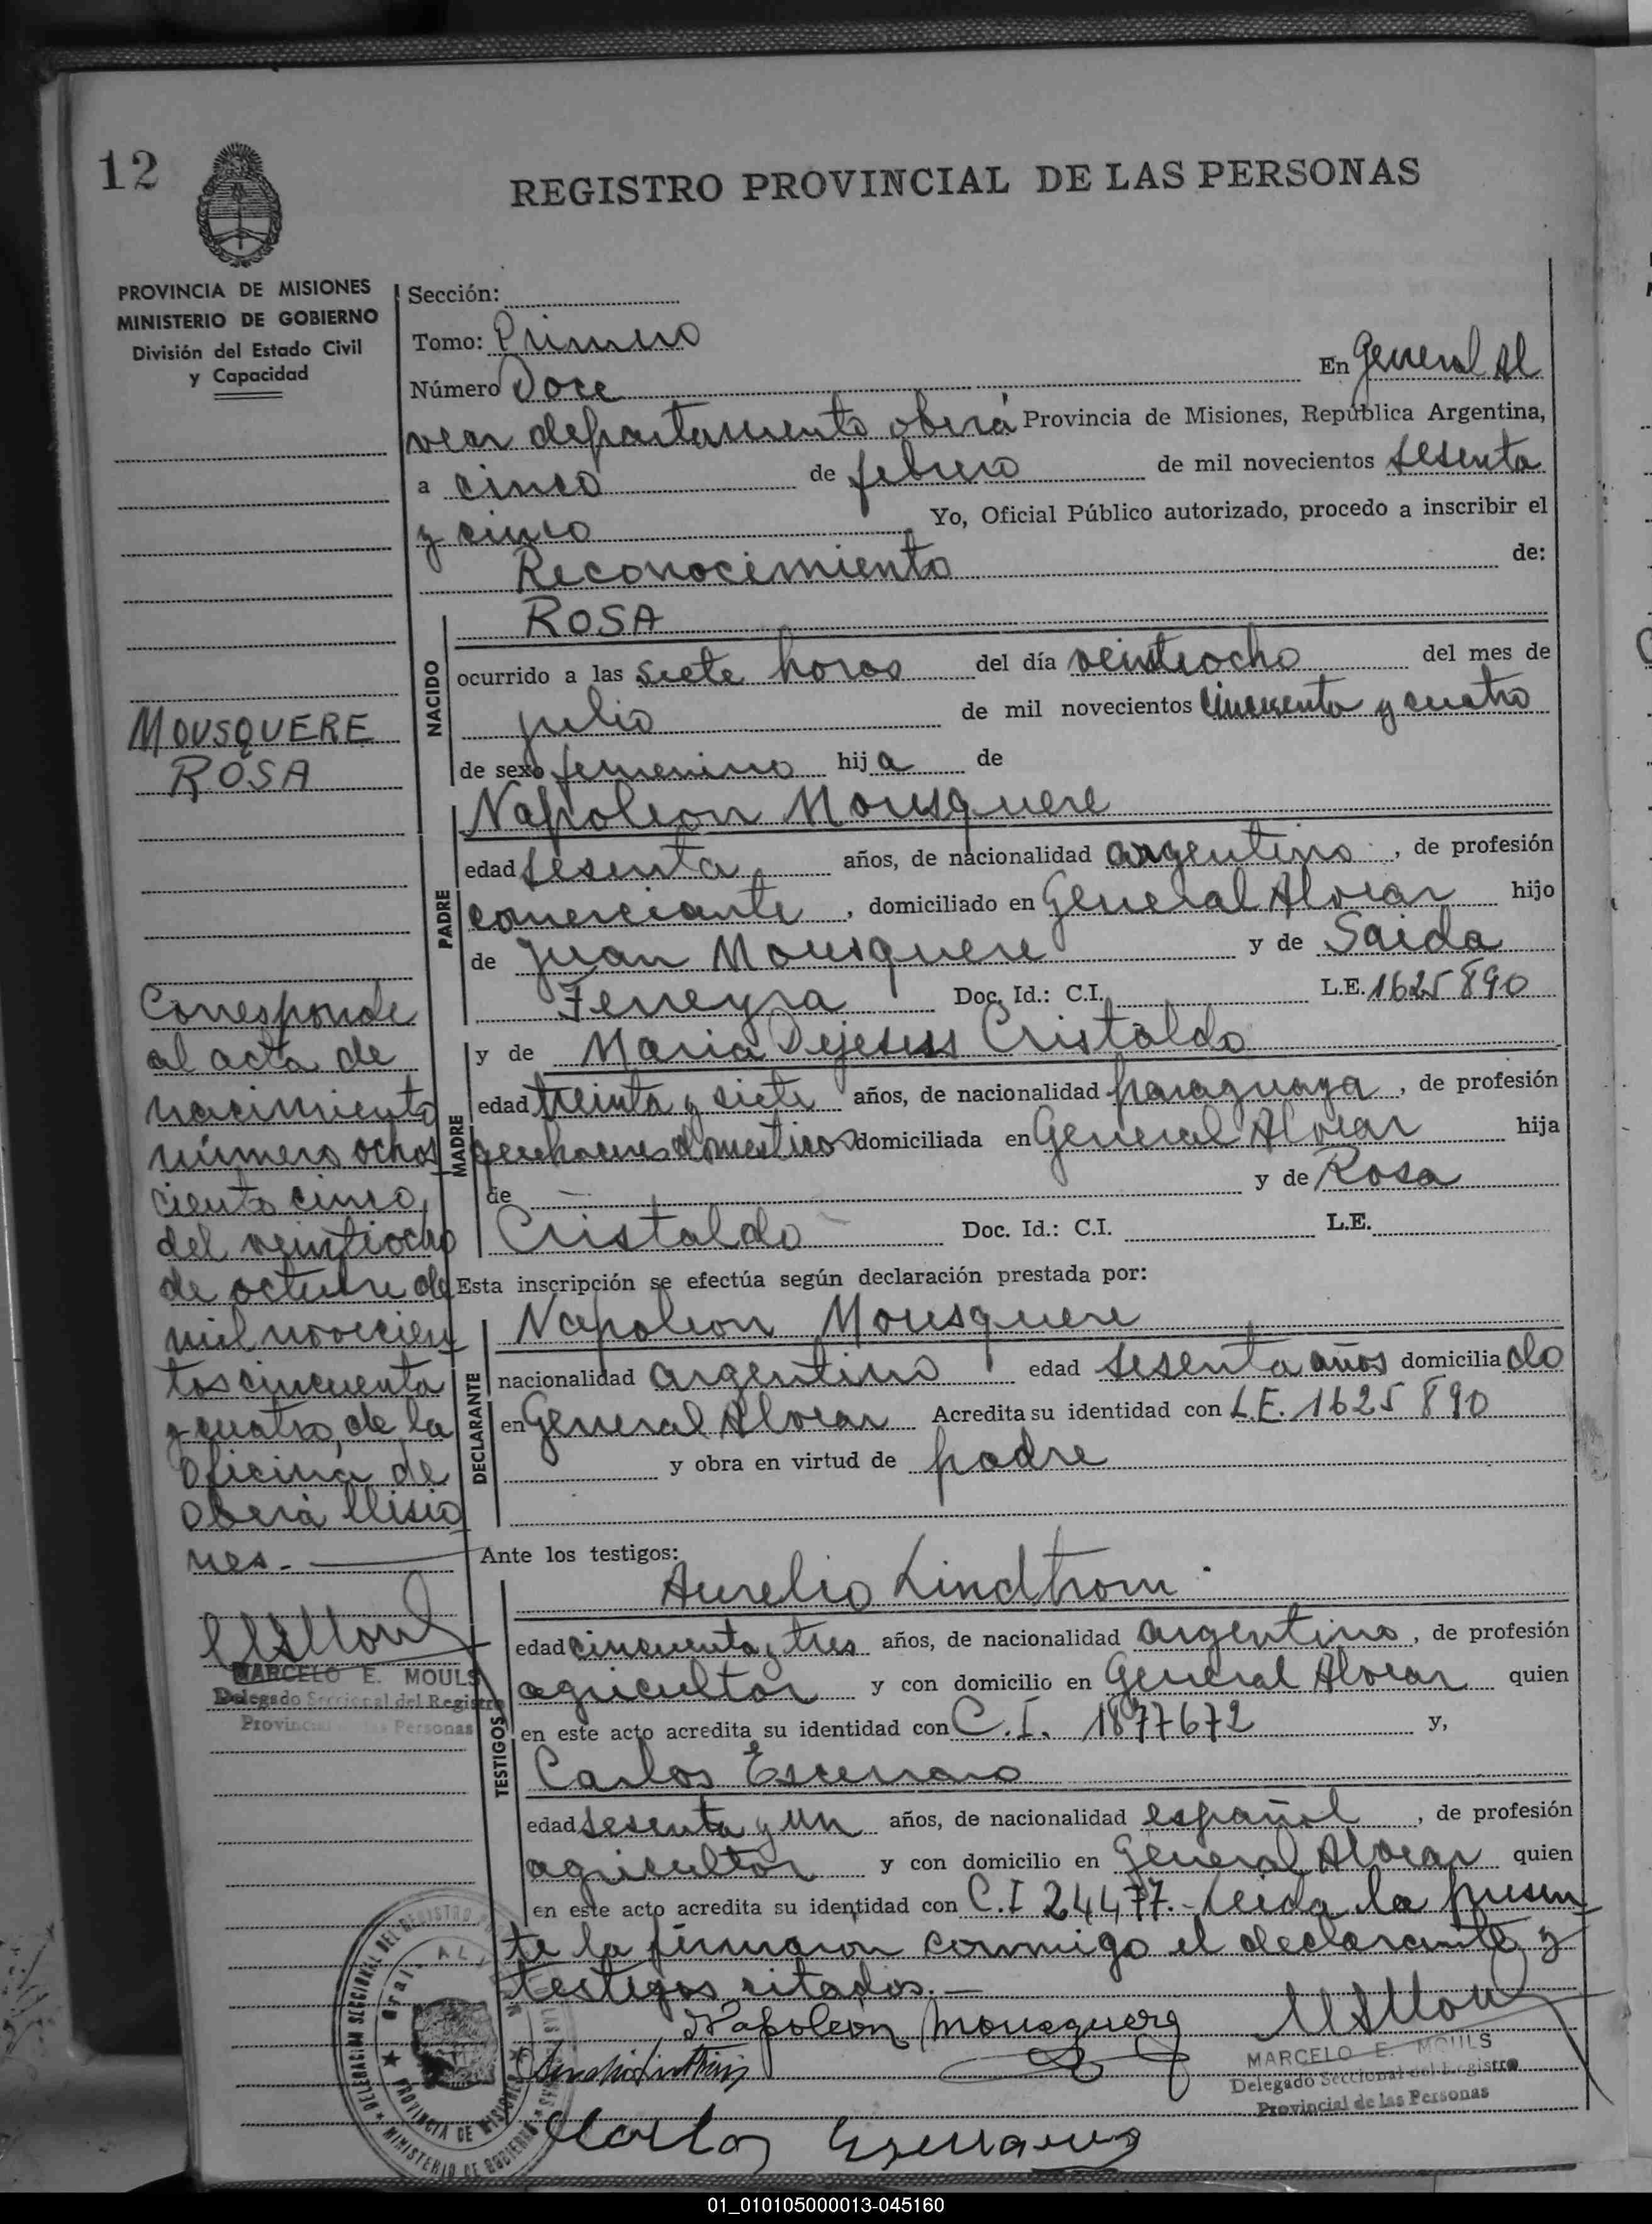 12
REGISTRO PROVINCIAL DE LAS PERSONAS
PROVINCIA DE MISIONES
MINISTERIO DE GOBIERNO
División del Estado Civil
y Capacidad
Sección:
Tomo: Primero
Número Doce En General Al
vear departamento oberá Provincia de Misiones, República Argentina,
a cinco de febrero de mil novecientos sesenta
y cinco Yo, Oficial Público autorizado, procedo a inscribir el
Reconocimiento de:
NACIDO
ROSA
ocurrido a las siete horas del día veintiocho del mes de
julio de mil novecientos cincuenta y cuatro
de sexo femenino hija de
MOUSQUERE
ROSA
PADRE
Napoleon Mousquere
edad sesenta años, de nacionalidad argentino, de profesión
comerciante, domiciliado en General Alvear hijo
de Juan Mousquere y de Saida
Ferreyra Doc. Id.: C.I. L.E. 1625890
MADRE
y de Maria Dejesus Cristaldo
edad treinta y siete años, de nacionalidad paraguaya, de profesión
quehaceres domesticos domiciliada en General Alvear hija
de — y de Rosa
Cristaldo Doc. Id.: C.I. L.E.
Esta inscripción se efectúa según declaración prestada por:
DECLARANTE
Napoleon Mousquere
nacionalidad argentino edad sesenta años domiciliado
en General Alvear Acredita su identidad con L.E. 1625890
y obra en virtud de padre
Corresponde
al acta de
nacimiento
número ochos
ciento cinco
del veintiocho
de octubre de
mil novecien
tos cincuenta
y cuatro, de la
Oficina de
Oberá Misio
nes.-
MARCELO E. MOULS
Delegado Seccional del Registro
Provincial de las Personas
Ante los testigos:
TESTIGOS
Aurelio Lindtrom
edad cincuenta y tres años, de nacionalidad argentino, de profesión
agricultor y con domicilio en General Alvear quien
en este acto acredita su identidad con C.I. 1877672 y,
Carlos Escerrano
edad sesenta y un años, de nacionalidad español, de profesión
agricultor y con domicilio en General Alvear quien
en este acto acredita su identidad con C.I 24477.- Leida la presen
te la firmaron conmigo el declarante y
testigos citados.-
Napoleon Mousquere
MARCELO E. MOULS
Delegado Seccional del Registro
Provincial de las Personas
Carlos
DELEGACION SECCIONAL DEL REGISTRO
Gral. ALVEAR
PROVINCIA DE MISIONES
MINISTERIO DE GOBIERNO
01_010105000013-045160